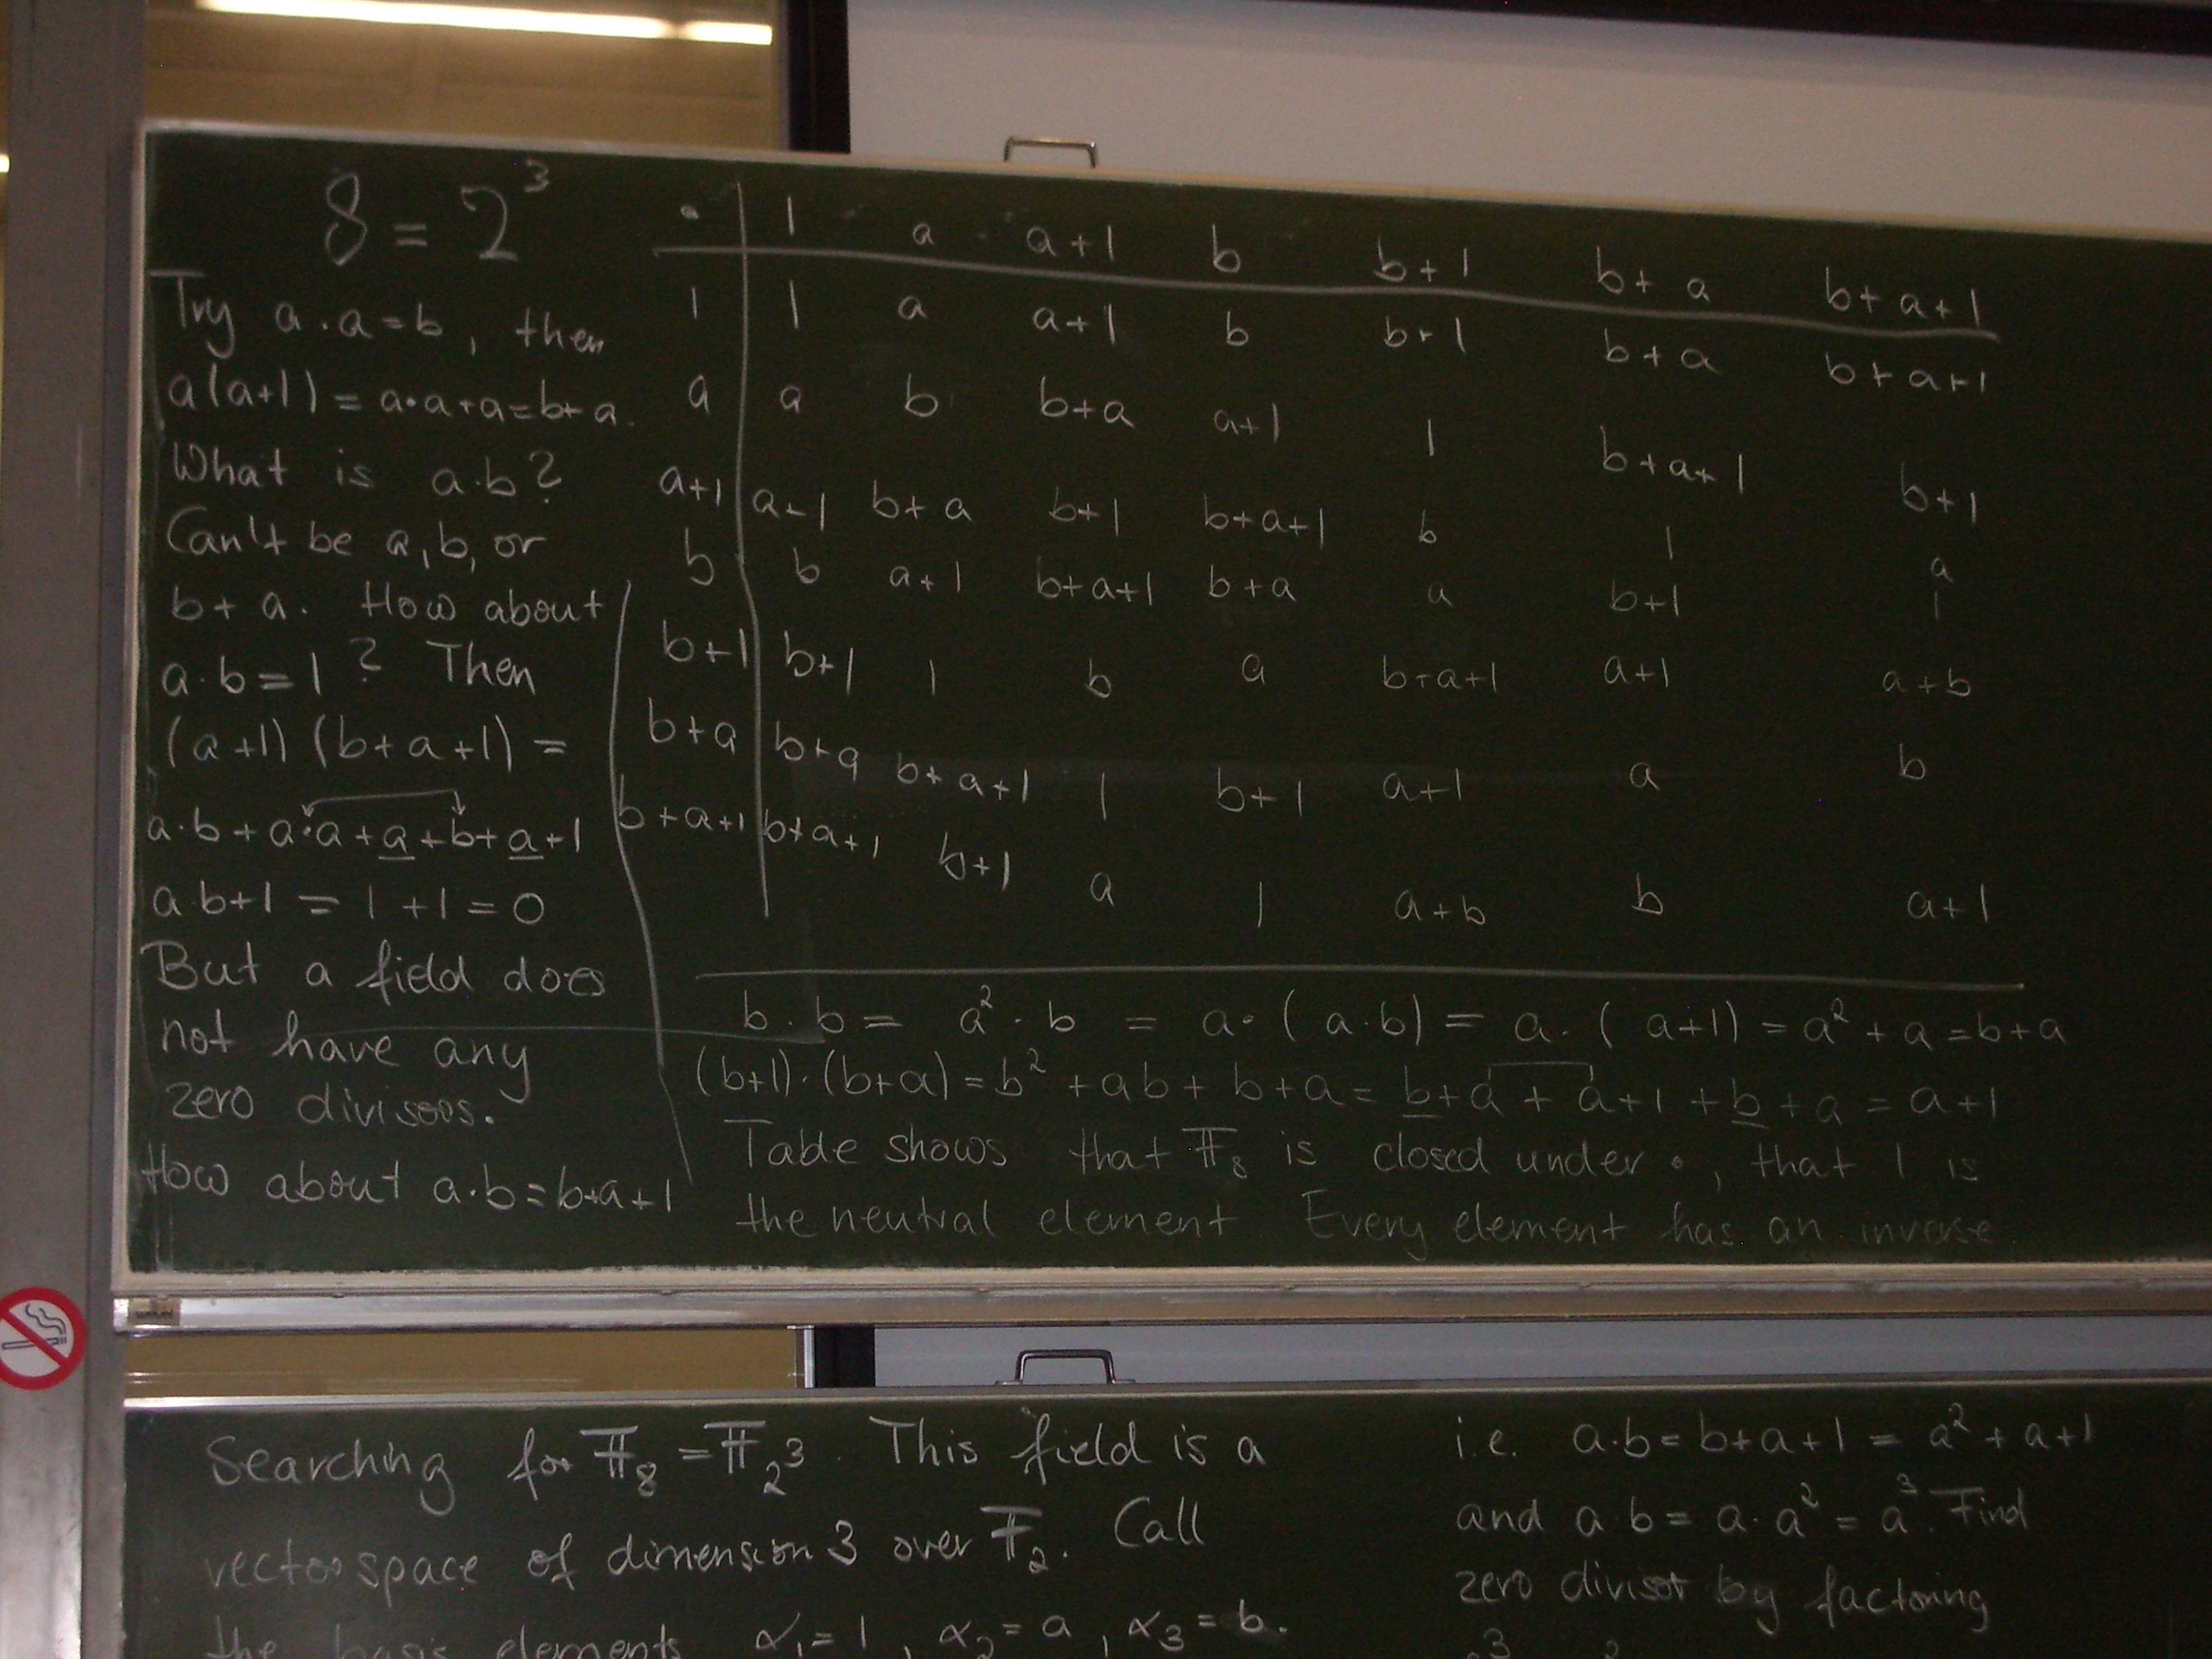 8 = 2³
Try a·a=b, then
a(a+1) = a·a+a=b+a.
What is a·b?
Can't be a, b, or
b+a. How about
a·b=1? Then
(a+1)(b+a+1) =
a·b+a·a+a+b+a+1
a·b+1 = 1+1=0
But a field does
not have any
zero divisors.
How about a·b=b+a+1
· 1 a a+1 b b+1 b+a b+a+1
1 1 a a+1 b b+1 b+a b+a+1
a a b b+a a+1 1 b+a+1 b+1
a+1 a+1 b+a b+1 b+a+1 b 1 a
b b a+1 b+a+1 b+a a b+1 1
b+1 b+1 1 b a b+a+1 a+1 a+b
b+a b+a b+a+1 1 b+1 a+1 a b
b+a+1 b+a+1 b+1 a 1 a+b b a+1
b·b = a²·b = a·(a·b) = a·(a+1) = a²+a=b+a
(b+1)·(b+a) = b²+ab+b+a = b+a+a+1+b+a = a+1
Table shows that 𝔽₈ is closed under ·, that 1 is
the neutral element Every element has an inverse
Searching for 𝔽₈ = 𝔽₂³. This field is a
vectorspace of dimension 3 over 𝔽₂. Call
the basis elements α₁=1, α₂=a, α₃=b.
i.e. a·b=b+a+1 = a²+a+1
and a·b=a·a²=a³. Find
zero divisor by factoring